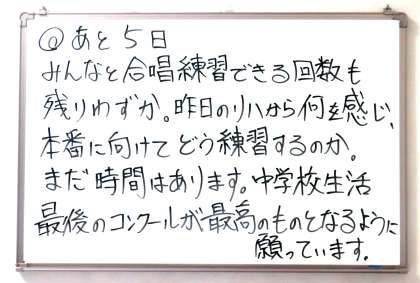 @あと5日
みんなと合唱練習できる回数も
残りわずか。昨日のリハから何を感じ、
本番に向けてどう練習するのか。
まだ時間はあります。中学校生活
最後のコンクールが最高のものとなるように
願っています。